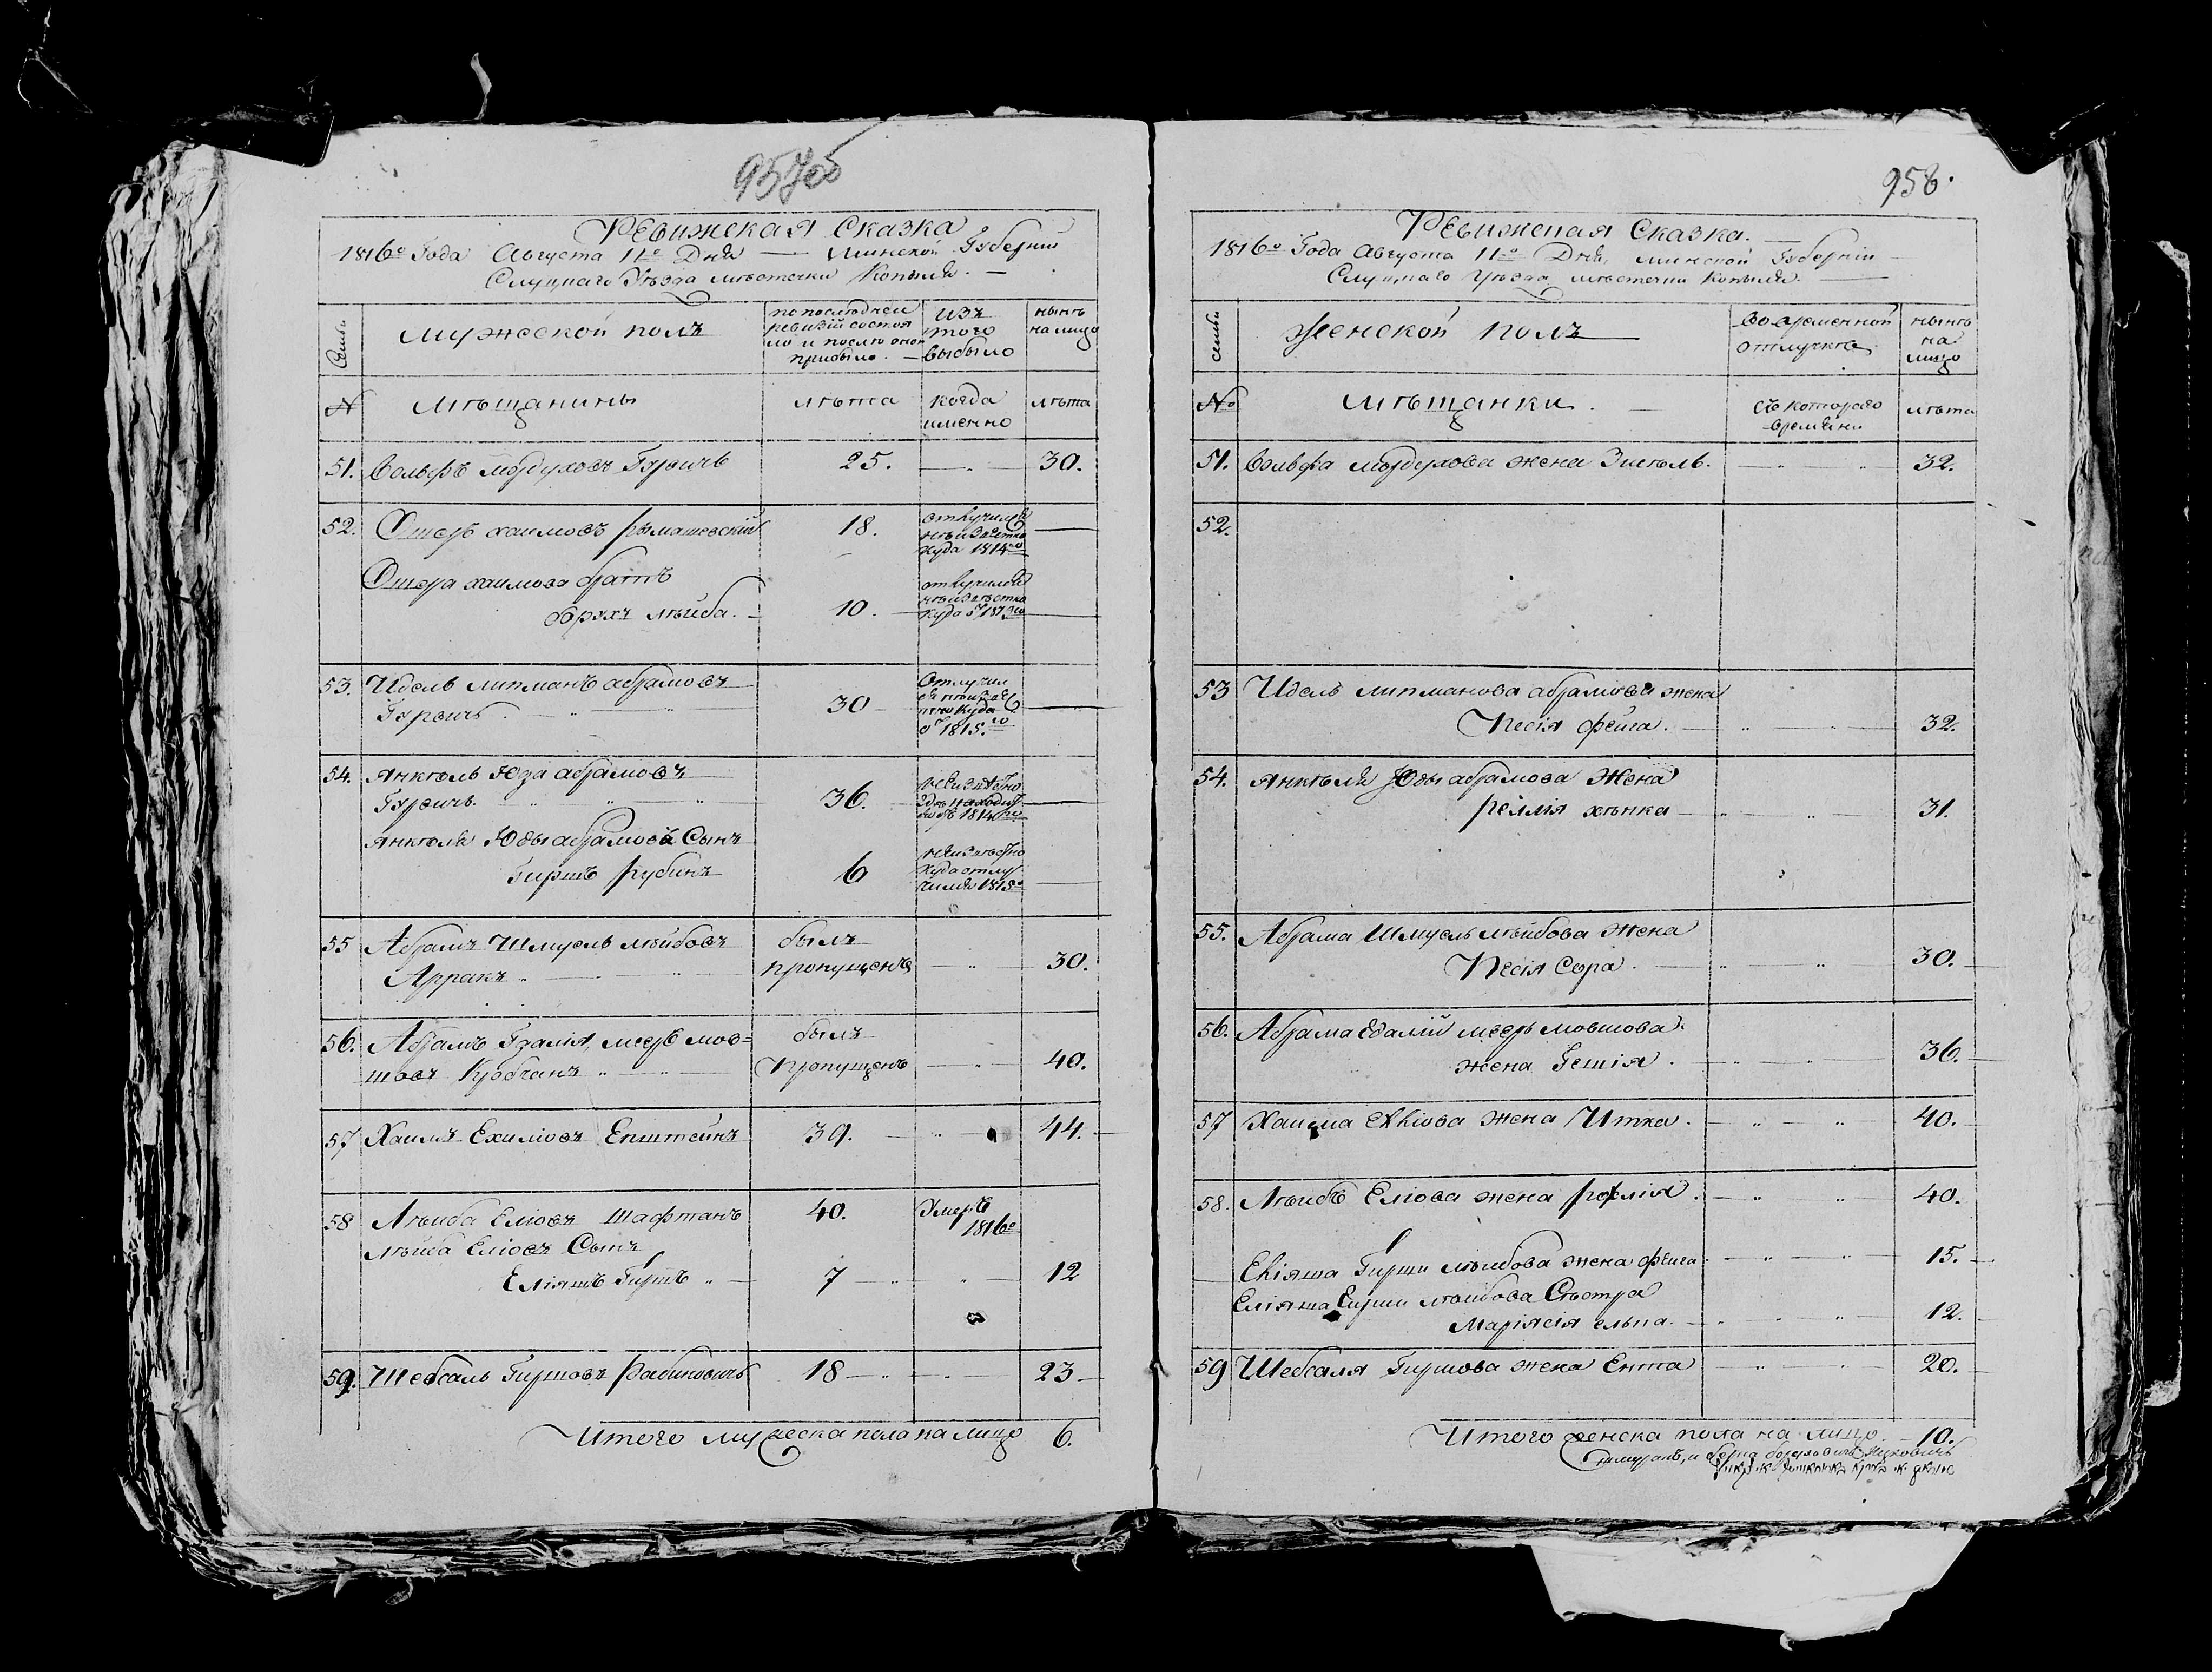 957об
Ревижская Сказка
1816го Года Августа 11го Дня — Минской Губерніи
Слуцкаго Уѣзда мѣстечки Копыля. —
Семьи
Мужеской полъ
по последней
ревизіи состоя
ло и после оной
прибыло. —
изъ
того
выбыло
нынѣ
на лицо
№
Мѣщанины
лѣта
когда
именно
лѣта
51. Вольфъ Мордуховъ Гурвичъ 25. — „ — 30.
52. Ошеръ Хаимовъ 18.
отлучился
неизвѣстно
куда 1814го
Ошера Хаимова братъ
Борухъ Лѣйба. — 10. —
отлучился
неизвѣстно
куда
53. Идель Липманъ Абрамовъ
Гурвичъ. — „ — „ — 30 —
Отлучил
ся неизвѣс
тно куда
отъ 1815.го
54. Янкѣль Юда Абрамовъ
Гурвичъ. — „ — „ — „ 36. —
1814го
Янкѣля Юды Абрамова Сынъ
Гиршъ Рубинъ 6
неизвѣстно
куда отлу
чился
55 Абрамъ Шмуель Лѣйбовъ былъ
Арракъ „ — „ пропущенъ — „ — 30.
56. Абрамъ Мееръ Мов= былъ
шовъ „ — „ — пропущенъ — „ — 40.
57 Хаимъ Епштейнъ 39. — „ — 44. —
58 Лѣйба Еліовъ Шафтанъ 40. Умеръ
1816го
Лѣйба Еліовъ Сынъ
Еліяшъ Гиршъ „ — 7 — „ — „ — 12
59. Шебсаль Гиршовъ Рабиновичъ 18 — „ — „ — 23 —
Итого мужеска пола на лицо 6.
958.
Ревижская Сказка. —
1816го Года Августа 11го Дня, Минской Губерніи —
Слуцкаго Уѣзда мѣстечки Копыля. —
семьи
Женской полъ
Во временной
отлучкѣ
нынѣ
на
лицо
№
Мѣщанки. —
Съ котораго
времяни
лѣта
51. Вольфа Мордухова жена — „ — „ — 32.
52.
53 Идель Липманова Абрамова жена
Песія Фейга. — „ — „ — 32.
54. Янкѣля Юды Абрамова Жена
Хѣнка — „ — „ — 31.
55. Абрама Шмуель Лѣйбова Жена
Песія Сора. — „ — „ — 30. —
56. Абрама Меерь Мовшова
жена Гешія. — „ — „ — 36. —
57 Хаима жена Итка. — „ — „ — 40. —
58. Лѣйбъ Еліова жена — „ — „ — 40.
Еліяша Гирши Лѣйбова жена Фейга — „ — „ — 15. —
Еліяша Гирши Лѣйбова Сѣстра
— „ — „ — 12. —
59 Шебсаля Гиршова жена Ента — „ — „ — 20. —
Итого женска пола на лицо — 10.